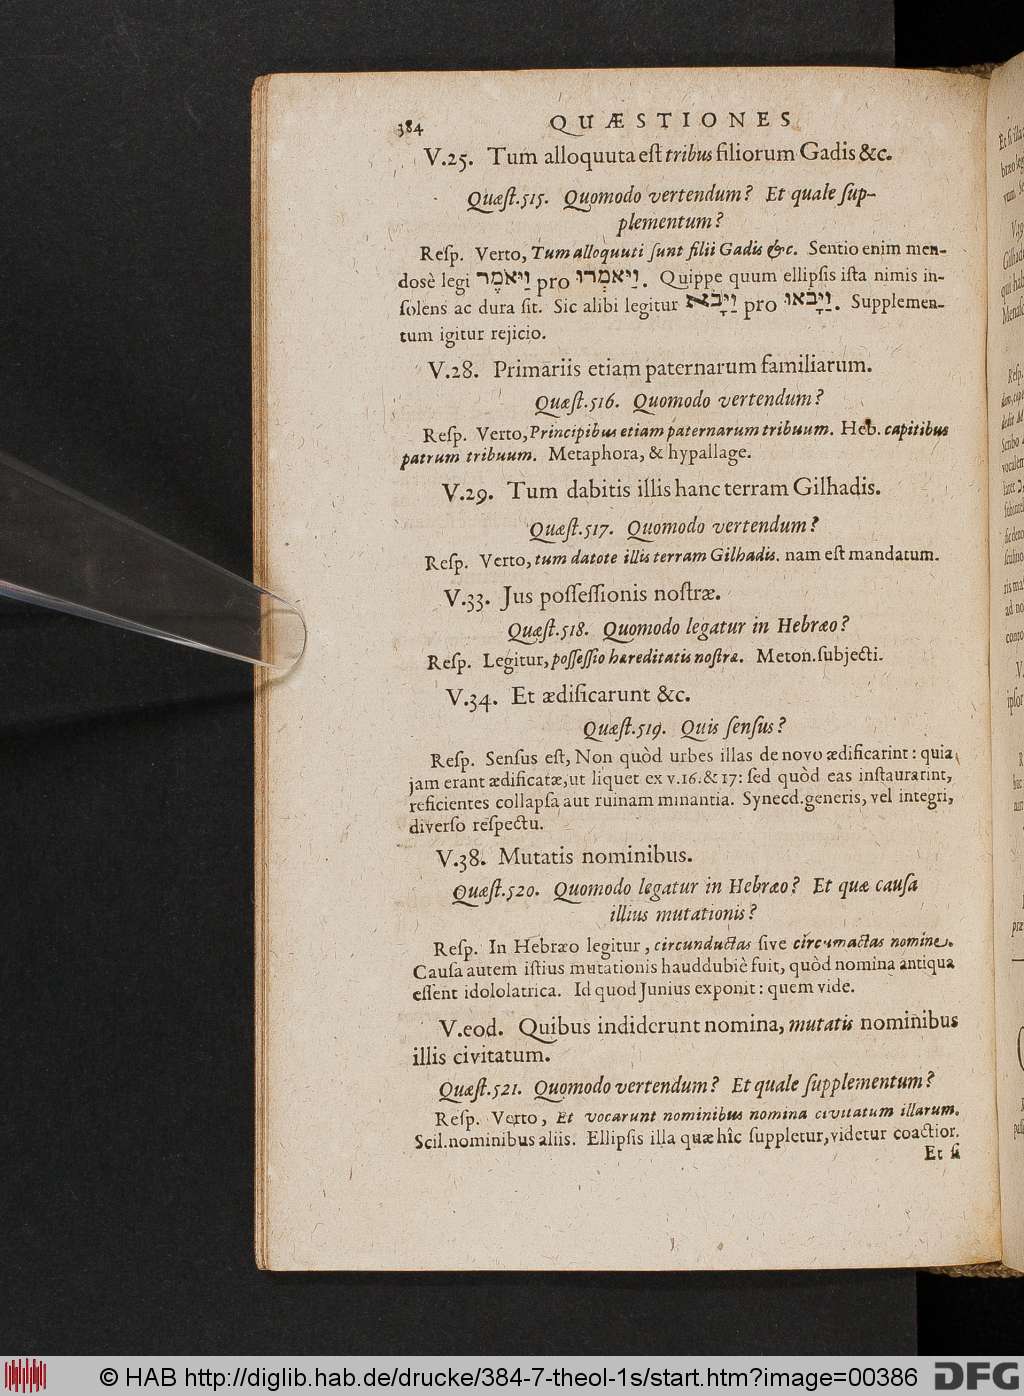 384 QUÆSTIONES
V.25. Tum alloquuta eſt tribus filiorum Gadis &c.
Quæſt.515. Quomodo vertendum? Et quale ſup-
plementum?
Reſp. Verto, Tum alloquuti ſunt filii Gadis &c. Sentio enim men-
dosè legi וַיּאמֶר pro וַיּאמְרוּ. Quippe quum ellipſis iſta nimis in-
ſolens ac dura ſit. Sic alibi legitur וַיָּבא pro וַיָּבאוּ. Supplemen-
tum igitur rejicio.
V.28. Primariis etiam paternarum familiarum.
Quæſt.516. Quomodo vertendum?
Reſp. Verto, Principibus etiam paternarum tribuum. Heb. capitibus
patrum tribuum. Metaphora, & hypallage.
V.29. Tum dabitis illis hanc terram Gilhadis.
Quæſt.517. Quomodo vertendum?
Reſp. Verto, tum datote illis terram Gilhadis. nam eſt mandatum.
V.33. Jus poſſeſſionis noſtræ.
Quæſt.518. Quomodo legatur in Hebræo?
Reſp. Legitur, poſſeſſio hæreditatis noſtræ. Meton. ſubjecti.
V.34. Et ædificarunt &c.
Quæſt.519. Quis ſenſus?
Reſp. Senſus eſt, Non quòd urbes illas de novo ædificarint: quia
jam erant ædificatæ, ut liquet ex v.16.& 17: ſed quòd eas inſtaurarint,
reficientes collapſa aut ruinam minantia. Synecd. generis, vel integri,
diverſo reſpectu.
V.38. Mutatis nominibus.
Quæſt.520. Quomodo legatur in Hebræo? Et quæ cauſa
illius mutationis?
Reſp. In Hebræo legitur, circunductas ſive circumactas nomine.
Cauſa autem iſtius mutationis hauddubiè fuit, quòd nomina antiqua
eſſent idololatrica. Id quod Junius exponit: quem vide.
V.eod. Quibus indiderunt nomina, mutatis nominibus
illis civitatum.
Quæſt.521. Quomodo vertendum? Et quale ſupplementum?
Reſp. Verto, Et vocarunt nominibus nomina civitatum illarum.
Scil. nominibus aliis. Ellipſis illa quæ hîc ſuppletur, videtur coactior.
Et ſi
© HAB http://diglib.hab.de/drucke/384-7-theol-1s/start.htm?image=00386 DFG